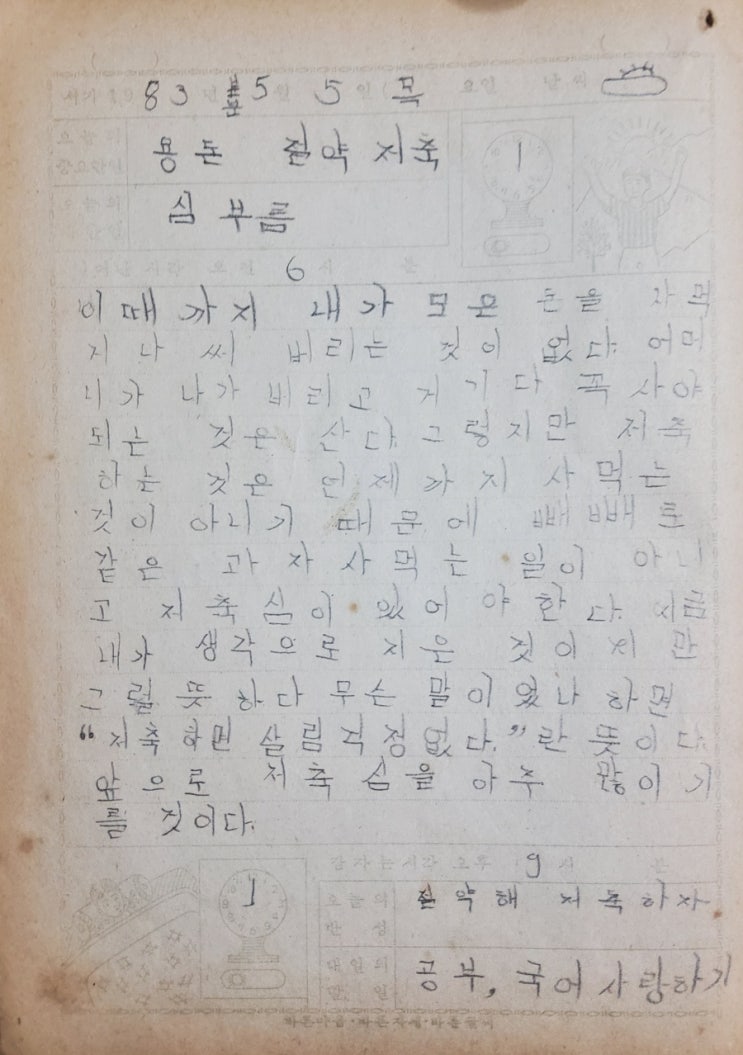 서기 19 83 년 5 월 5 일 ( 목 요일 날씨
오늘의 중요한일 용돈 절약 저축
오늘의 심부름
일어난 시각 오전 6 시 분
이때까지 내가 모은 돈을 사먹
지나 써 버리는 것이 없다. 어머
니가 나가 버리고 거기다 꼭 사야
되는 것은 산다. 그렇지만 저축
하는 것은 언제까지 사먹는
것이 아니기 때문에 빼빼로
같은 과자 사먹는 일이 아니
고 저축심이 있어야 한다. 지금
내가 생각으로 지은 것이지만
그럴 뜻하다 무슨 말이 있나 하면
“저축하면 살림걱정없다.”란 뜻이다.
앞으로 저축심을 아주 많이 기
를 것이다.
잠자는시각 오후 9 시 분
오늘의 반성 절약해 저축하자
내일의 할일 공부, 국어사랑하기